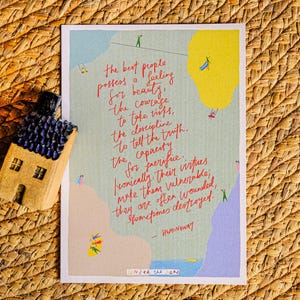 the best people
possess a feeling
for beauty,
the courage
to take risks,
the discipline
to tell the truth,
the capacity
for sacrifice.
Ironically, their virtues
make them vulnerable;
they are often wounded,
sometimes destroyed.